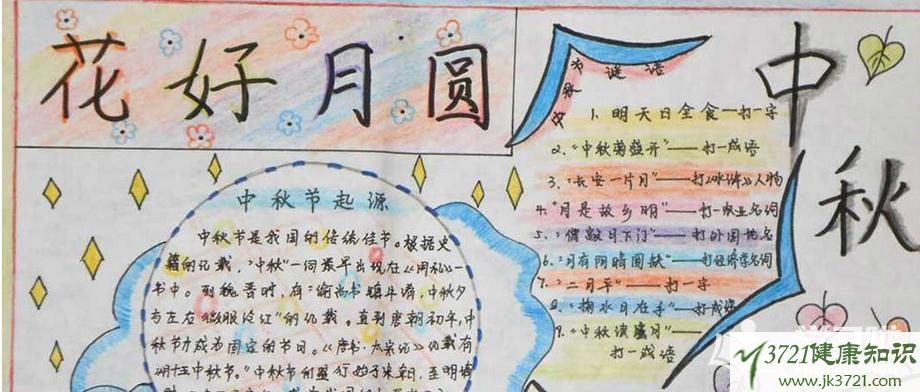 花好月圆
中秋
中秋节起源
中秋节是我国的传统佳节。根据史
籍的记载，“中秋”一词最早出现在《周礼》一
书中。到魏晋时，有“谕尚书镇牛渚，中秋夕
与左右微服泛江”的记载。直到唐朝初年，中
秋节才成为固定的节日。《唐书·太宗记》记载有
中秋节谜语
1、明天日全食—打一字
2、“中秋菊盛开”——打一成语
3、“长安一片月”——打《水浒》人物
4、“月是故乡明”——打一
5、“僧敲月下门”——打外国地名
6、“月有阴晴圆缺”——打经济学名词
7、“二月平”——打一字
8、“掬水月在手”——打成语
9、“中秋
打一成语
3721健康知识
www.jk3721.com